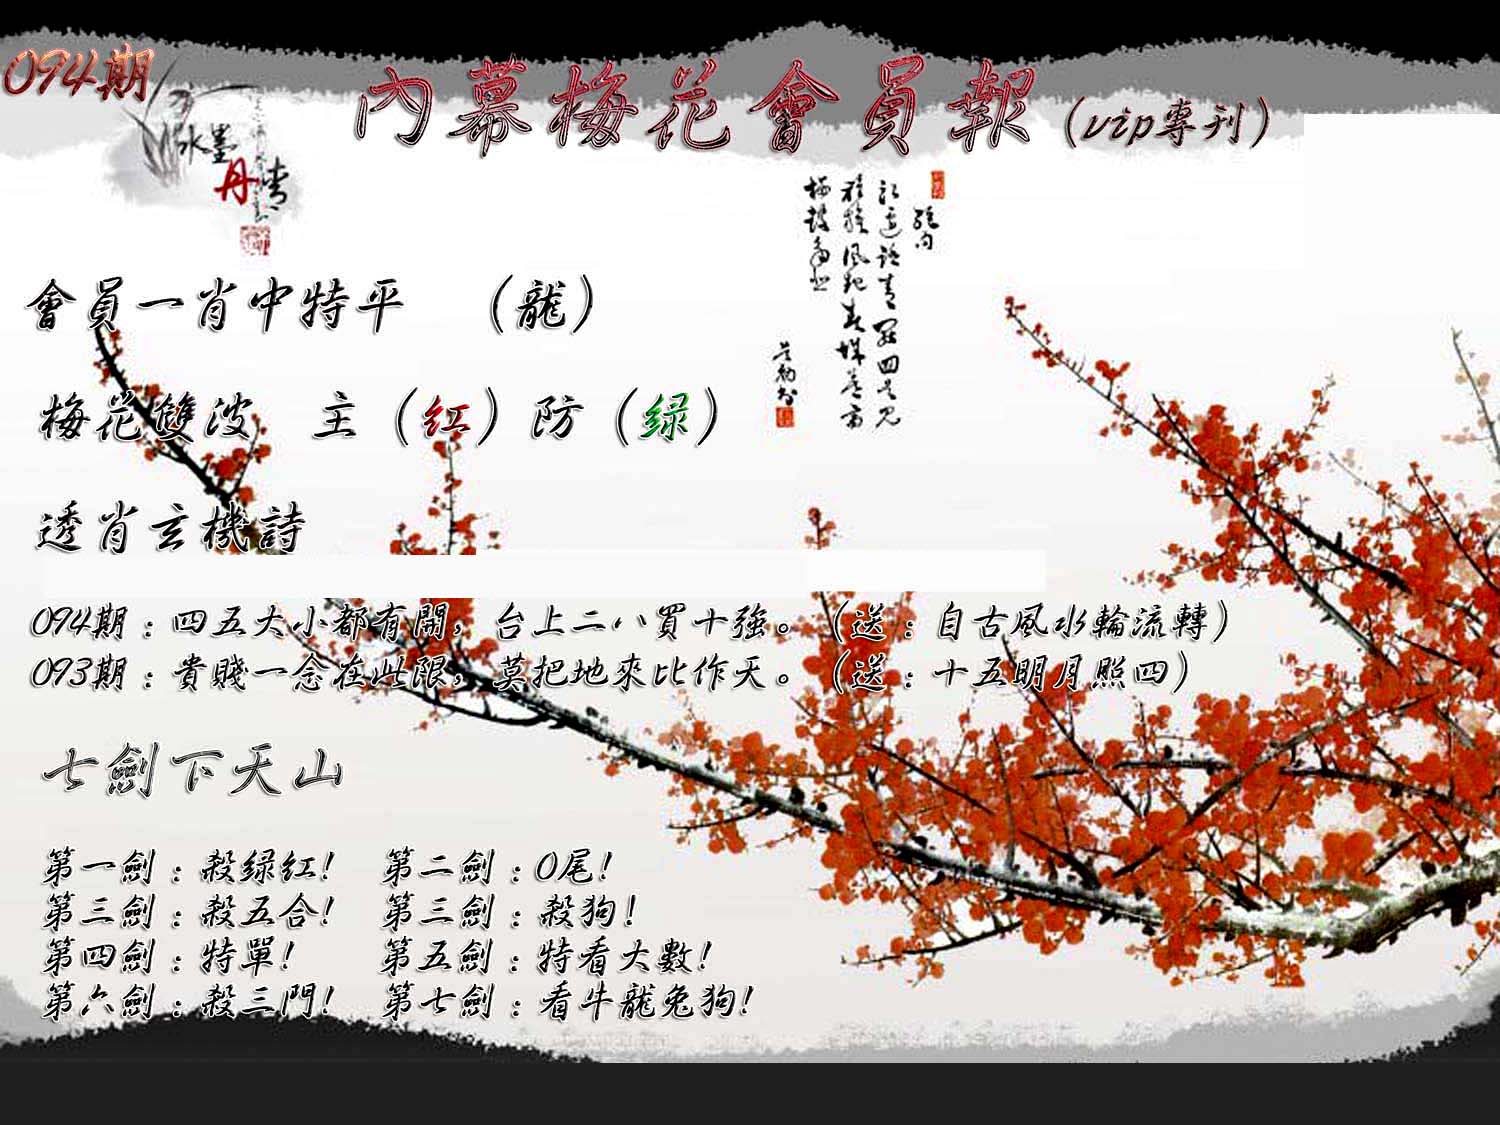 094期
內幕梅花會員報（vip專刊）
水墨
丹青
會員一肖中特平　（龍）
梅花雙波　主（紅）防（绿）
透肖玄機詩
094期：四五大小都有開，台上二八買十強。（送：自古風水輪流轉）
093期：貴賤一念在此限，莫把地來比作天。（送：十五明月照四）
七劍下天山
第一劍：殺绿紅！　第二劍：0尾！
第三劍：殺五合！　第三劍：殺狗！
第四劍：特單！　第五劍：特看大數！
第六劍：殺三門！　第七劍：看牛龍兔狗！